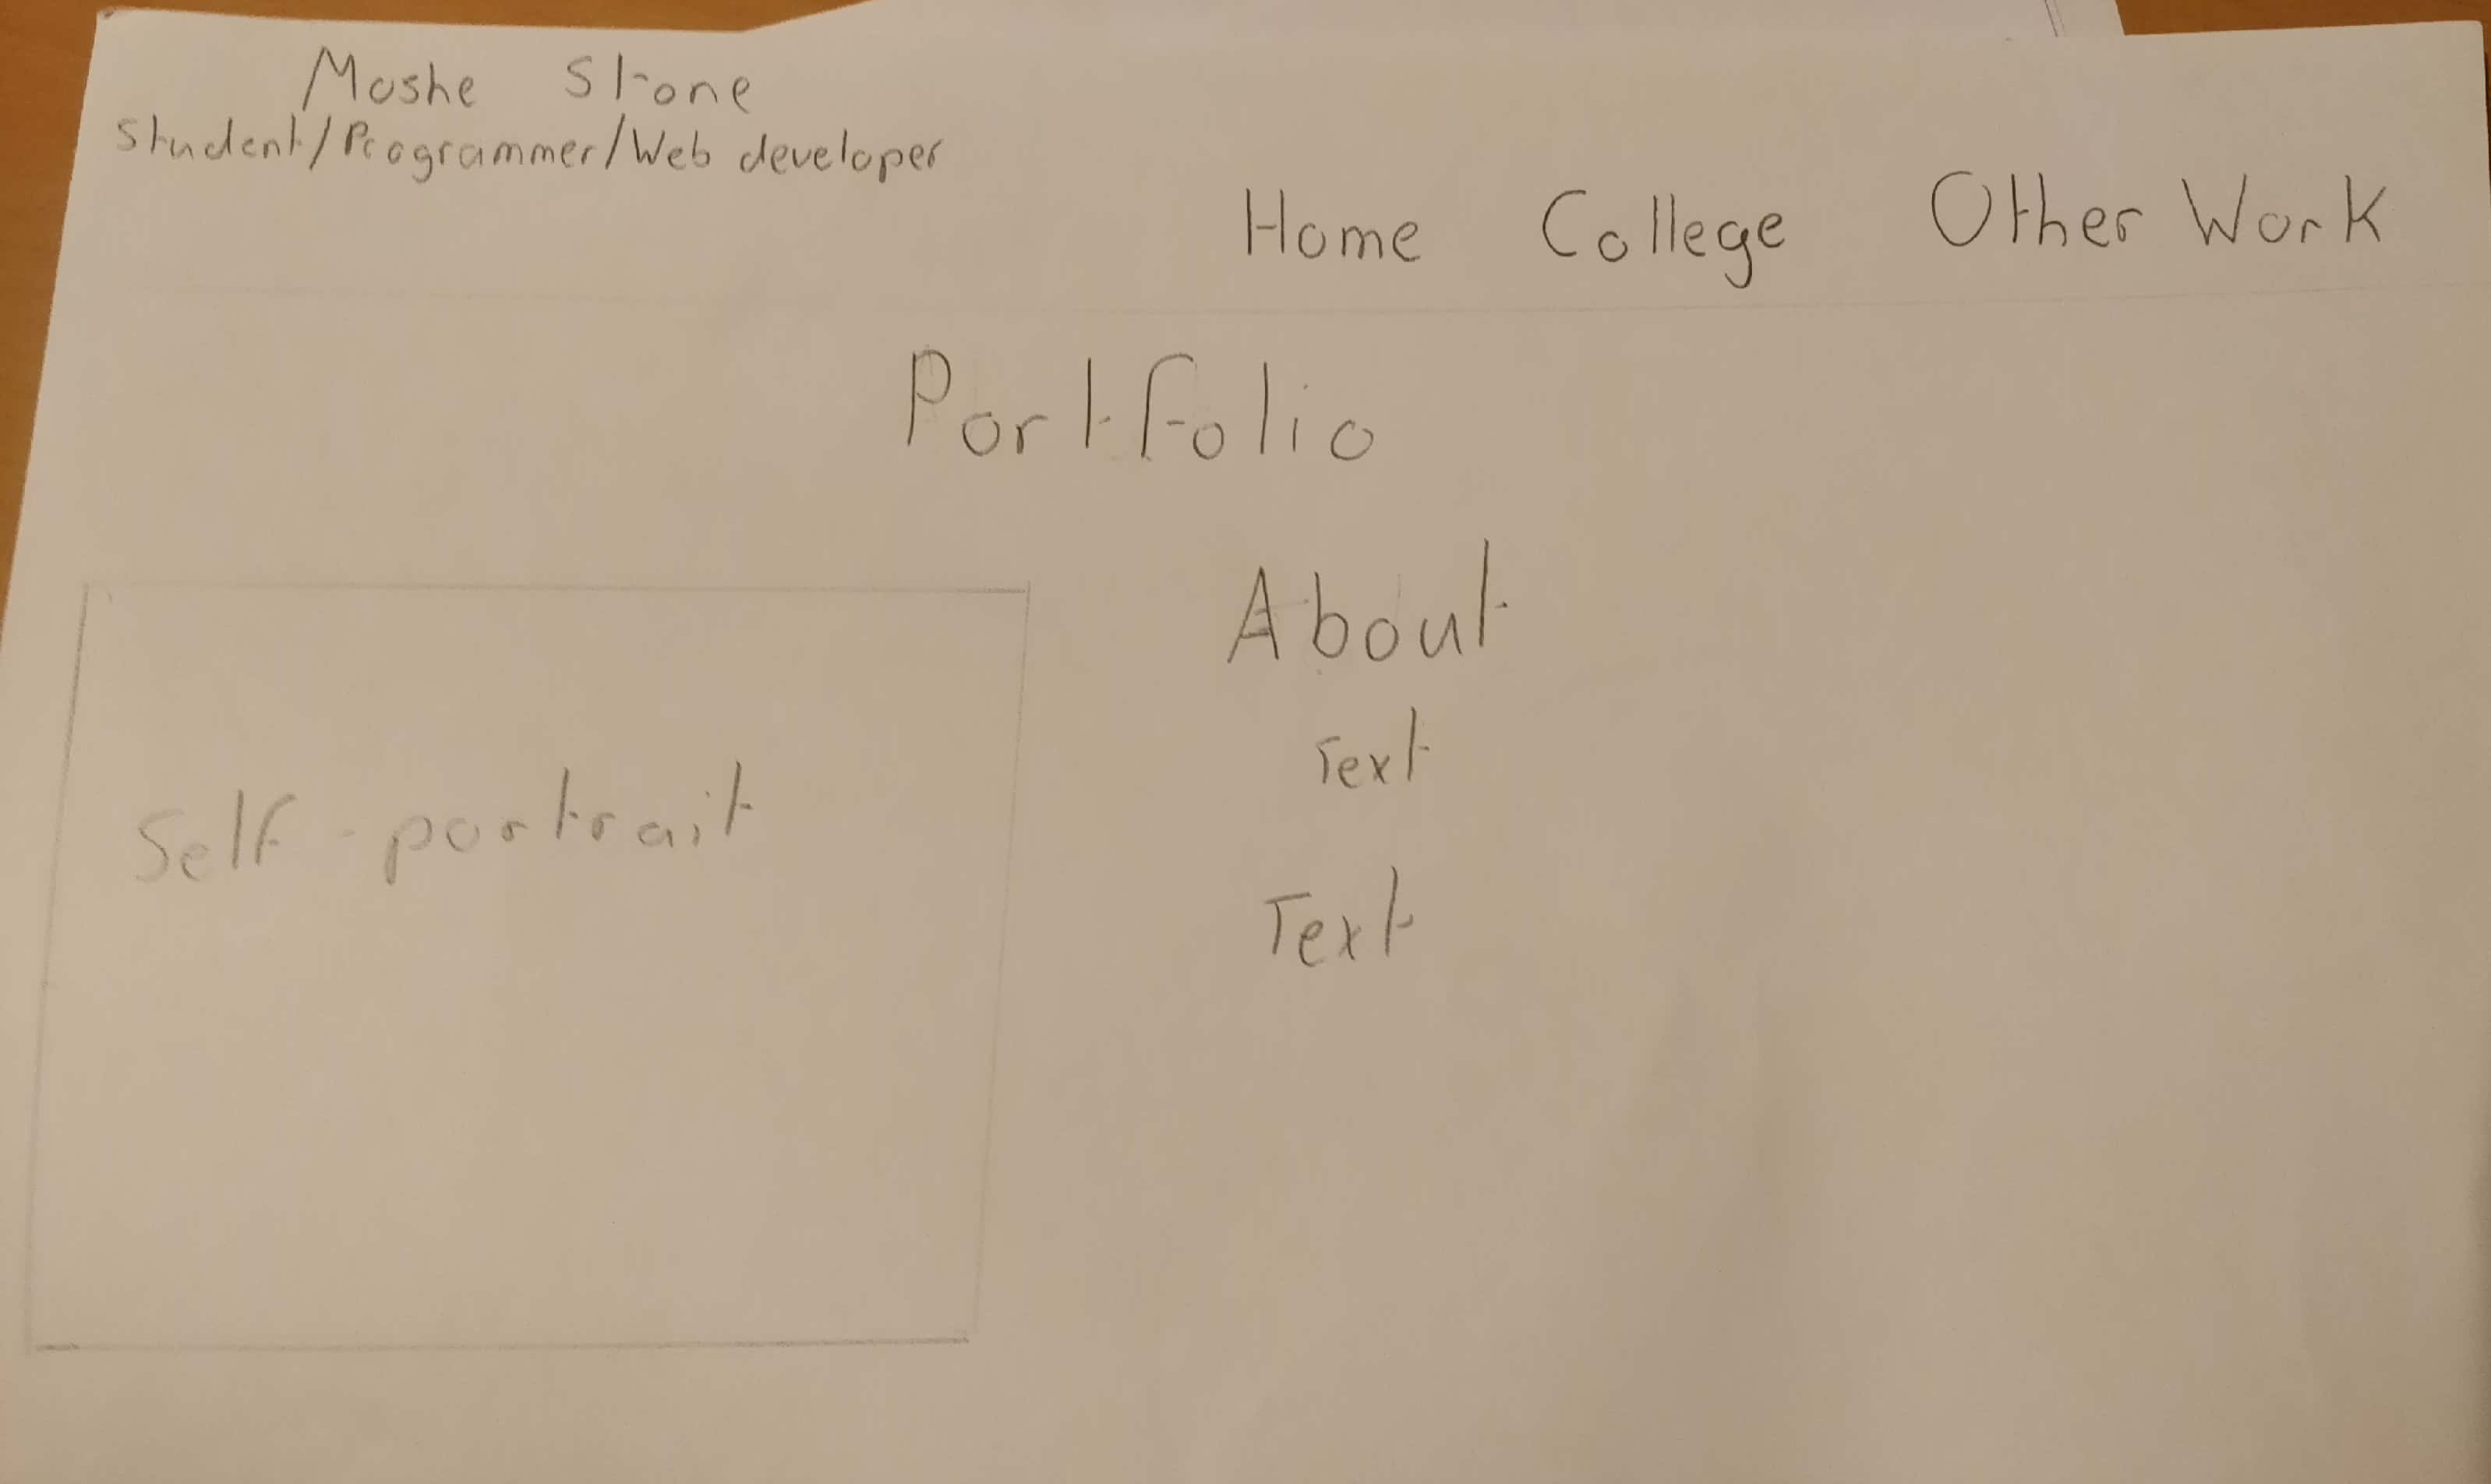 Moshe Stone
Student/Programmer/Web developer
Home College Other Work
Portfolio
About
Text
Self-portrait
Text